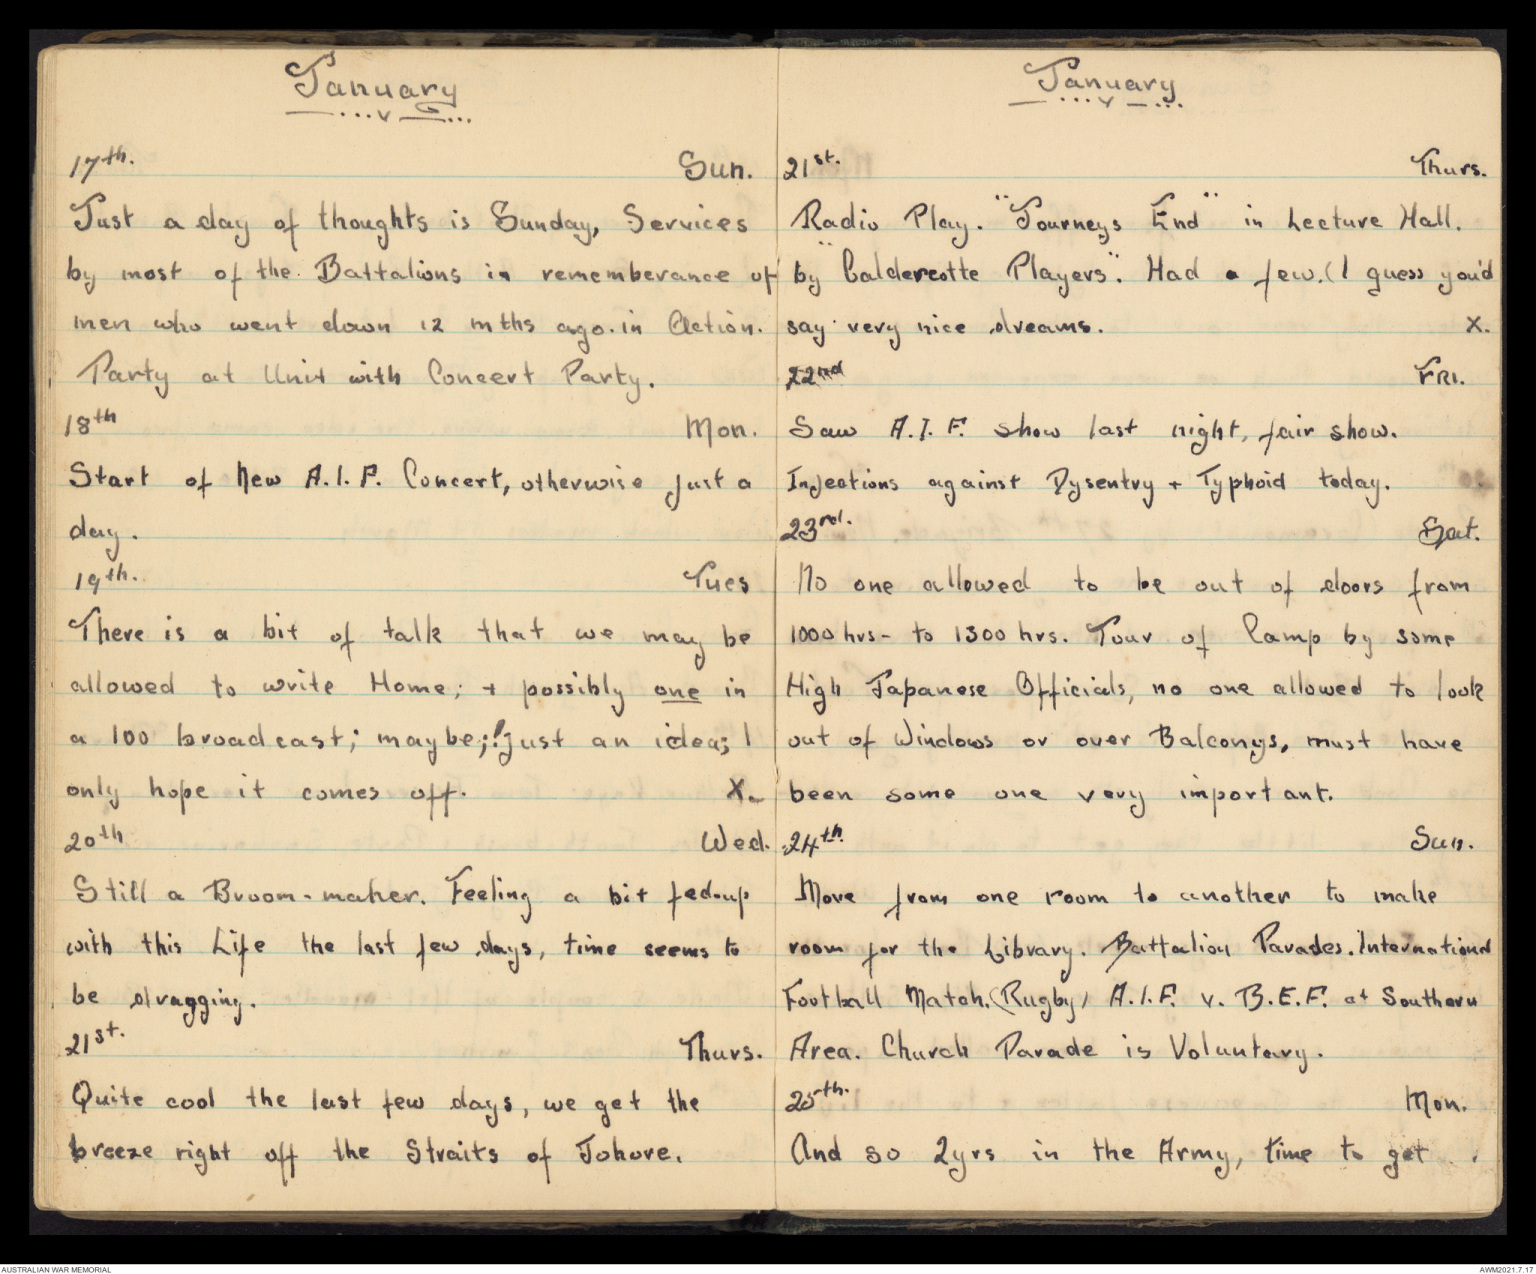 January
17th. Sun.
Just a day of thoughts is Sunday, Services
by most of the Battalions in rememberance of
men who went down 12 mths ago. in Action.
Party at Unit with Concert Party.
18th Mon.
Start of New A.I.F. Concert, otherwise just a
day.
19th. Tues
There is a bit of talk that we may be
allowed to write Home; + possibly one in
a 100 broadcast; maybe;! just an idea; I
only hope it comes off. X.
20th Wed.
Still a Broom-maker. Feeling a bit fed-up
with this Life the last few days, time seems to
be dragging.
21st. Thurs.
Quite cool the last few days, we get the
breeze right off the Straits of Johore.
January
21st. Thurs.
Radio Play. "Journeys End" in Lecture Hall.
by "Caldercotte Players". Had a few. (I guess you'd
say very nice dreams. X.
22nd FRI.
Saw A.I.F. show last night, fair show.
Injections against Dysentry + Typhoid today.
23rd. Sat.
No one allowed to be out of doors from
1000 hrs- to 1300 hrs. Tour of Camp by some
High Japanese Officials, no one allowed to look
out of Windows or over Balconys, must have
been some one very important.
24th. Sun.
Move from one room to another to make
room for the Library. Battalion Parades. International
Football Match. (Rugby) A.I.F. v. B.E.F. at Southern
Area. Church Parade is Voluntary.
25th. Mon.
And so 2yrs in the Army, time to get
AUSTRALIAN WAR MEMORIAL
AWM2021.7.17